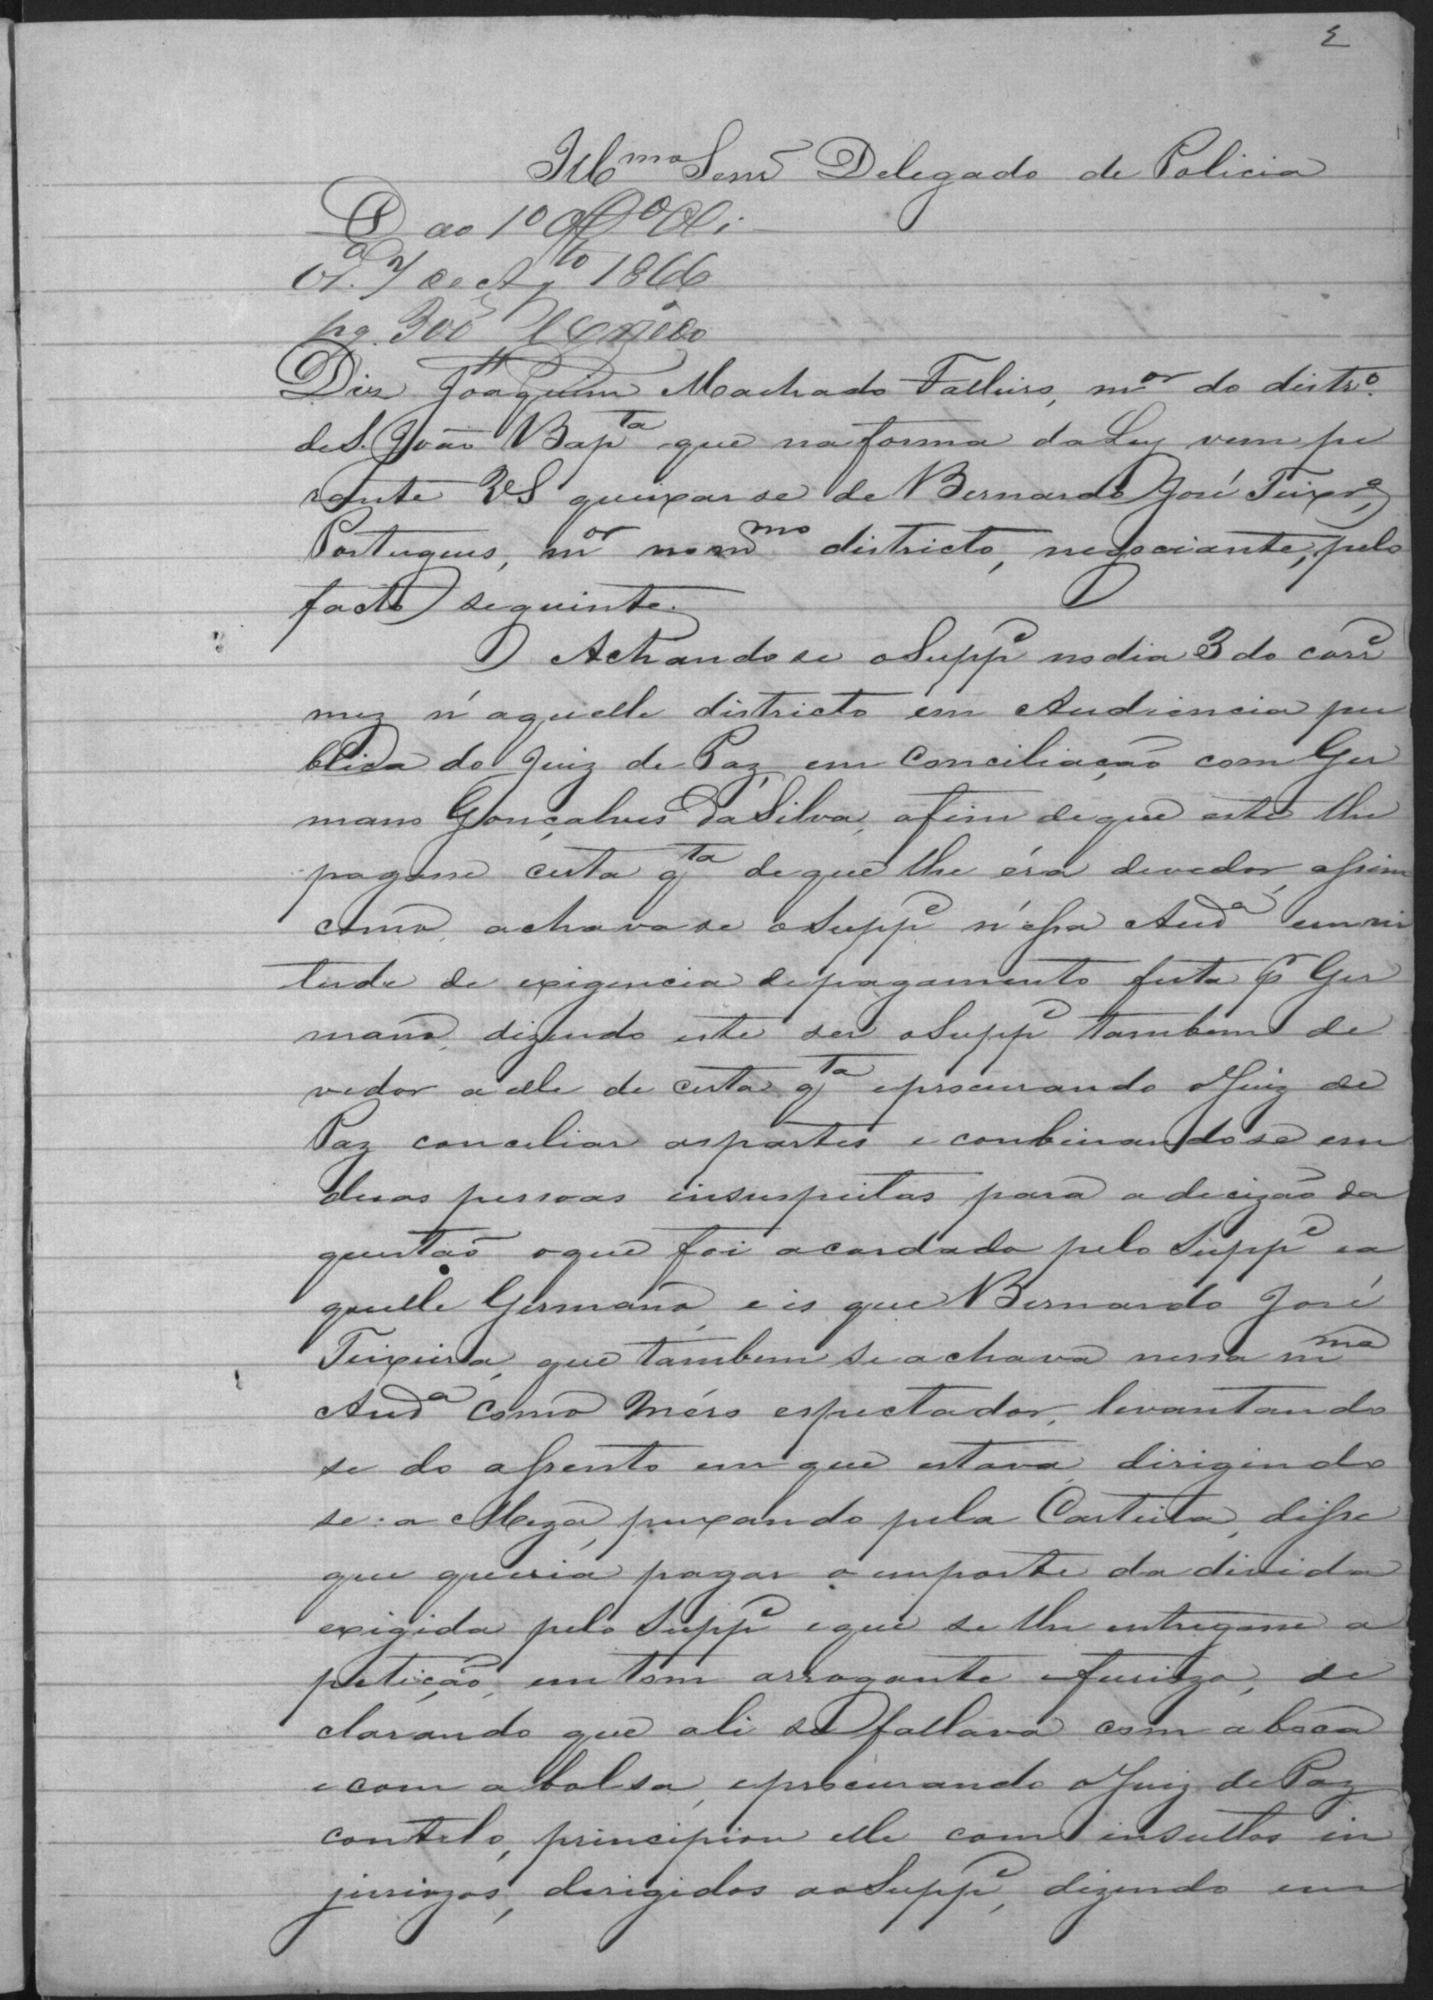 2
Ill.mo Senr. Delegado de Policia
D ao 1º Off.o
7 de Ag.to 1866
pg. 300
Diz Joaquim Machado Falleiro, m.or do distr.o
de S. João Bap.ta que na forma da Ley vem pe
rante VS queixar se de Bernardo José Teixr.a,
Portugues, m.or no m.mo districto, negociante, pelo
facto seguinte.
Achando se o Supp.e no dia 3 do corr.e
mez n'aquelle districto em Audiencia pu
blica do Juiz de Paz, em conciliação com Ger
mano Gonçalves da Silva, afim de que este lhe
pagasse certa q.ta de que lhe éra devedor, assim
como, achava se o Supp.e n'essa Aud.a em vir
tude de exigencia de pagamento feita p.r Ger
mano, dizendo este ser o Supp.e tambem de
vedor a elle de certa q.ta e procurando o Juiz de
Paz conciliar as partes e conbinando se em
duas pessoas insuspeitas para a decizão da
questão o que foi acordado pelo Supp.e e a
quelle Germano, e is que Bernardo José
Teixeira, que tambem se achava nessa m.ma
Aud.a como méro espectador, levantando
se do assento em que estava, dirigindo
se a Meza, puxando pela Carteira, disse
que queria pagar o importe da divida
exigida pelo Supp.e e que se lhe entregasse a
petição, em tom arrogante e furiozo, de
clarando que ali se fallava com a boca
e com a bolsa, e procurando o Juiz de Paz
contelo, principiou elle com insultos in
juriozos, derigidos ao Supp.e, dizendo em